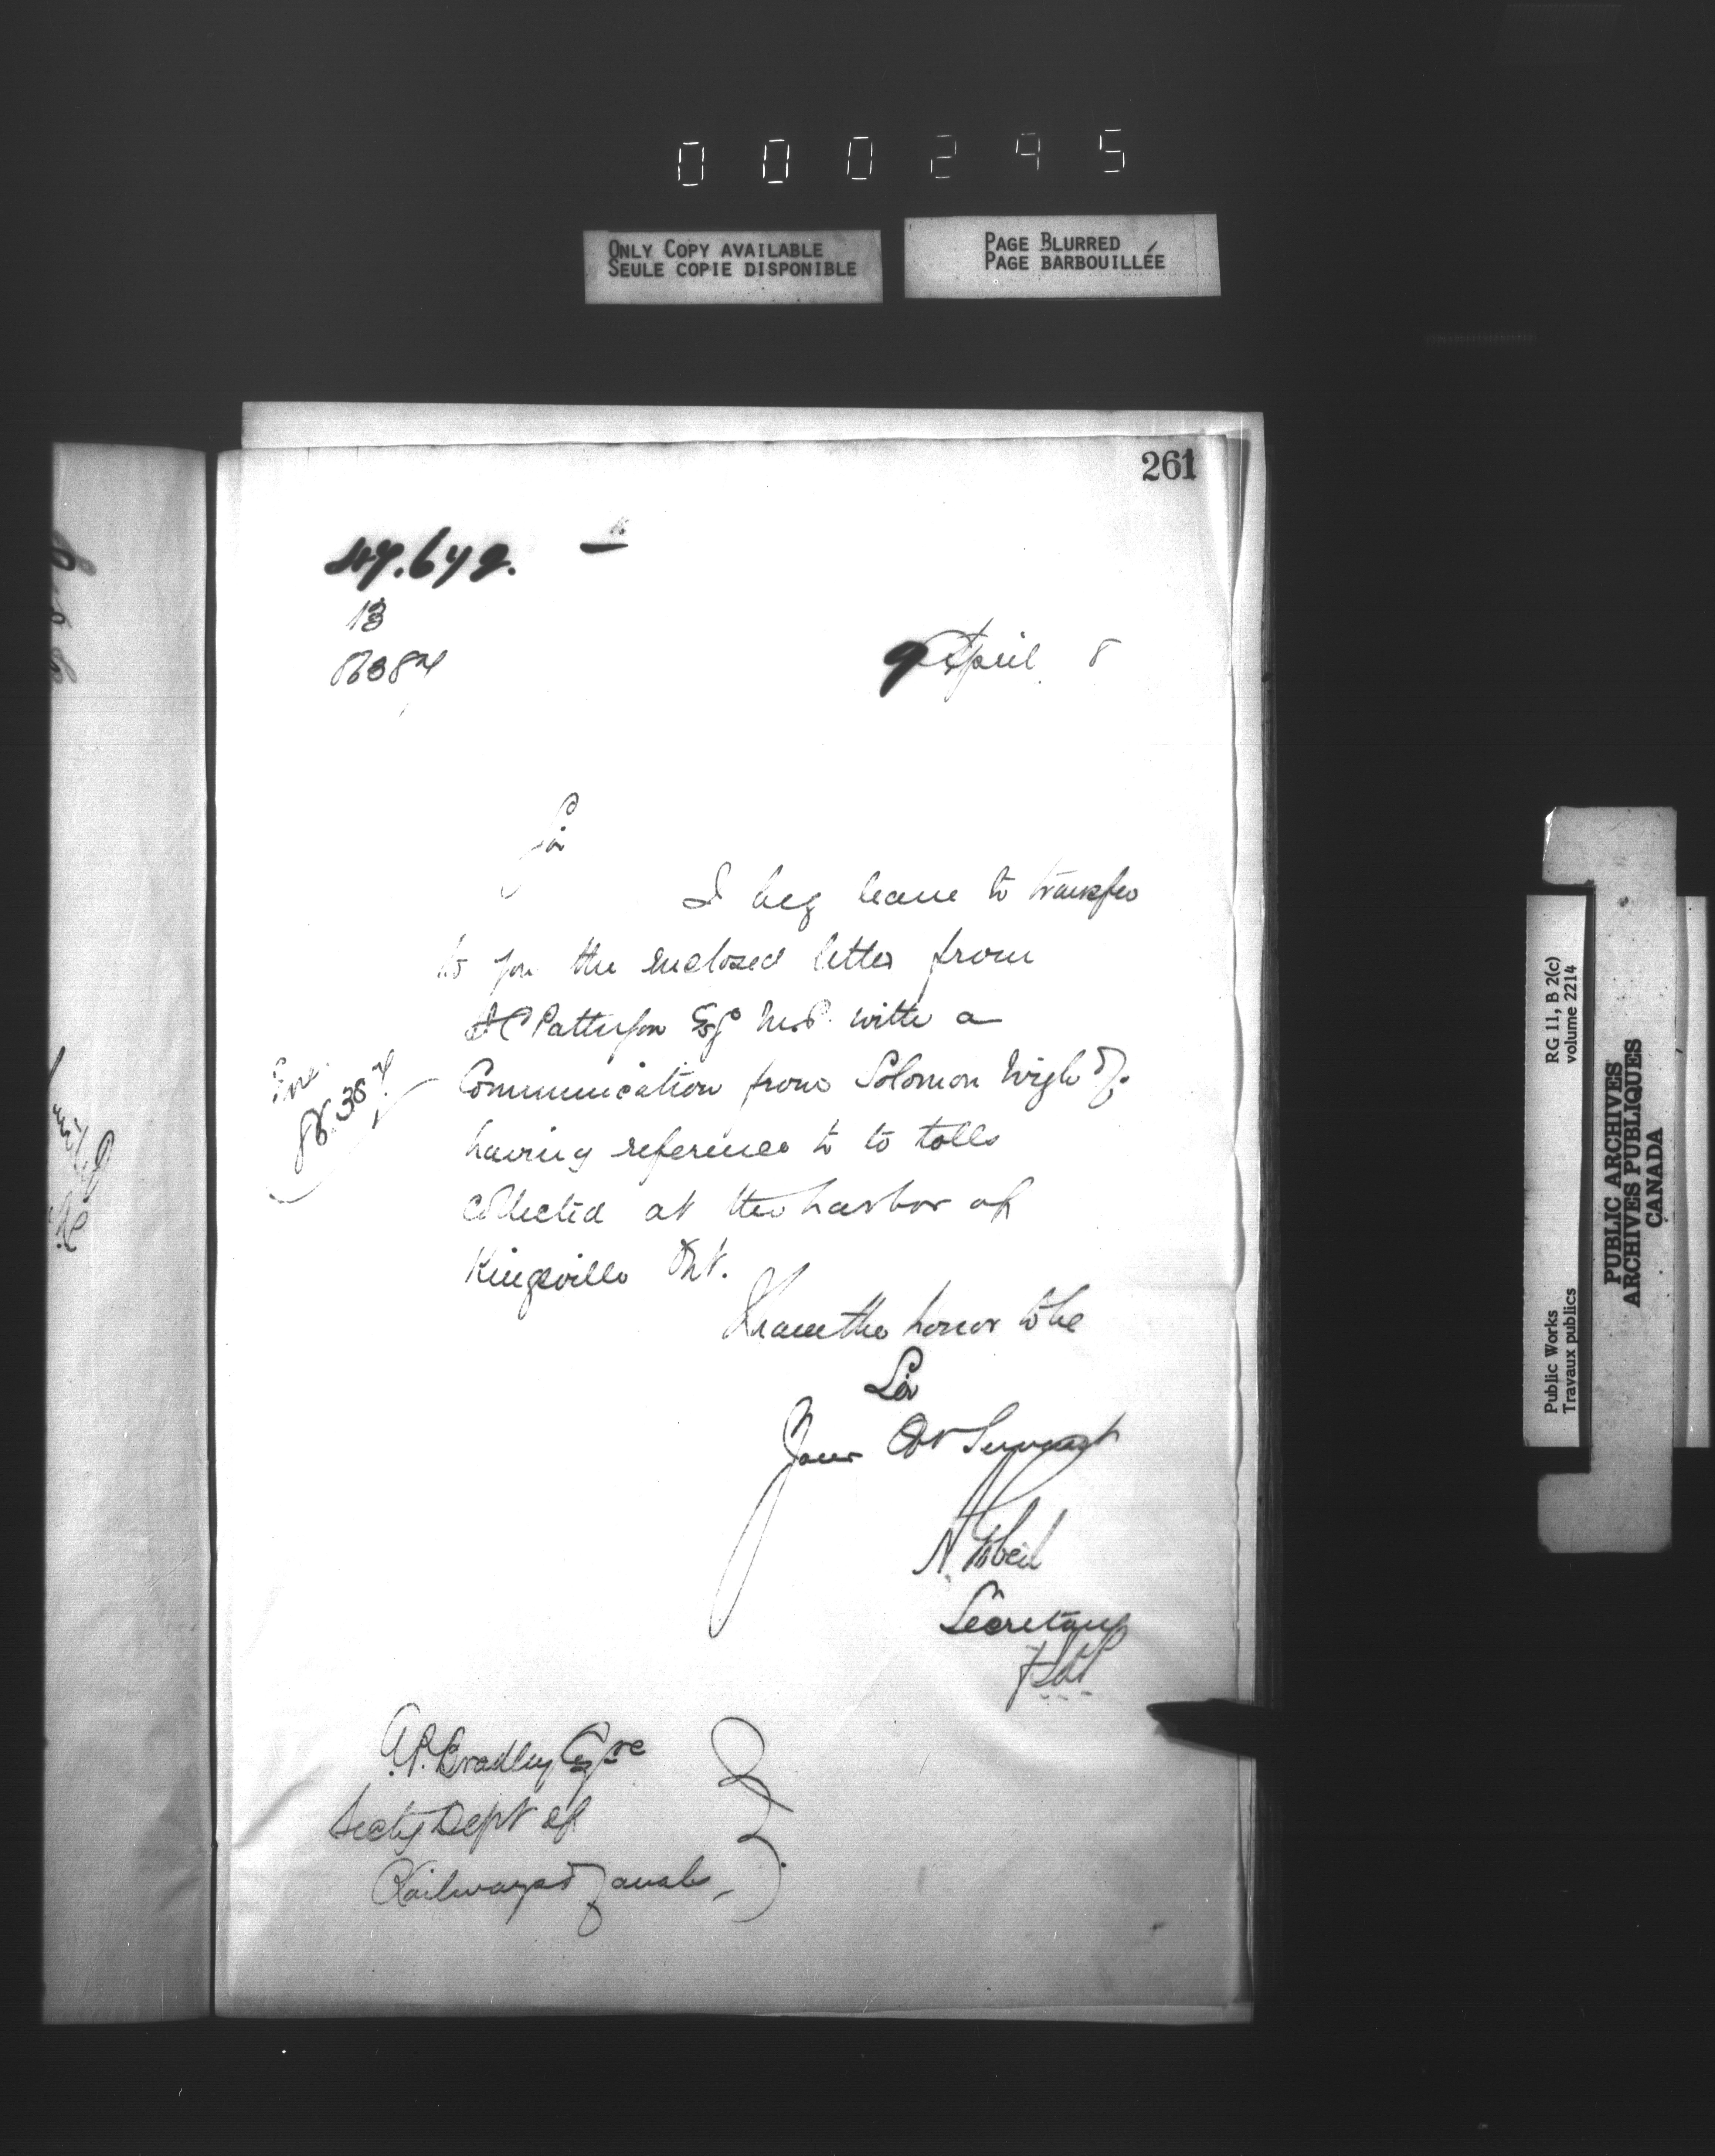 000295
ONLY COPY AVAILABLE
SEULE COPIE DISPONIBLE
PAGE BLURRED
PAGE BARBOUILLÉE
261
13
9 April 8
Sir
I beg leave to transfer
to you the enclosed letter from
J C Patterson Esqe M.P. with a
Communication from Solomon
having reference to to tolls
collected at the harbor of
Kingsville Ont.
I have the honor to be
Sir
Your Obt Servant
Secretary
A.P. Bradley Esqre
Secty Dept of
Railways & Canals
RG 11, B 2(c)
volume 2214
Public Works
Travaux publics
PUBLIC ARCHIVES
ARCHIVES PUBLIQUES
CANADA